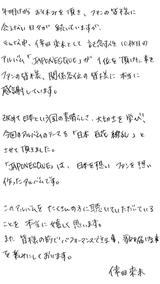 年明けから お休みを 頂き、ファンの皆様に
会えない日々が 続いていますが、
そんな中、倖田來未として 記念すべき10枚目の
アルバム「JAPONESQUE」が 1位を頂けた事を
ファンの皆様、関係各位の皆様に 本当に
感謝しています。
日本という国の素晴らしさ、大切さを学び、
今回のアルバムのテーマを「日本 日花 繚乱」と
させて頂きました。
「JAPONESQUE」は、日本を想い ファンを想い
作ったアルバムです。
このアルバムを たくさんの方に聴いていただいている
ことを 本当に嬉しく思います。
また 皆様の前で パフォーマンスできる事、
を楽しみにしております。
倖田來未